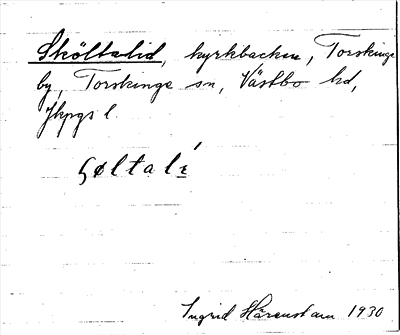 Sköltalid, kyrkbacken, Torskinge
by, Torskinge sn, Västbo hd,
Jkpgs l.
ʂøltalí
Ingrid Härenstam 1930